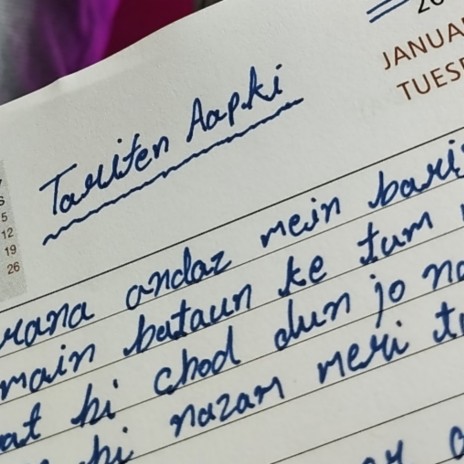 20
JANUA
TUES
5
12
19
26
Tarifen Aapki
rana andaz mein bari
main bataun ke tum
at hi chod dun jo na
hi nazar meri tu